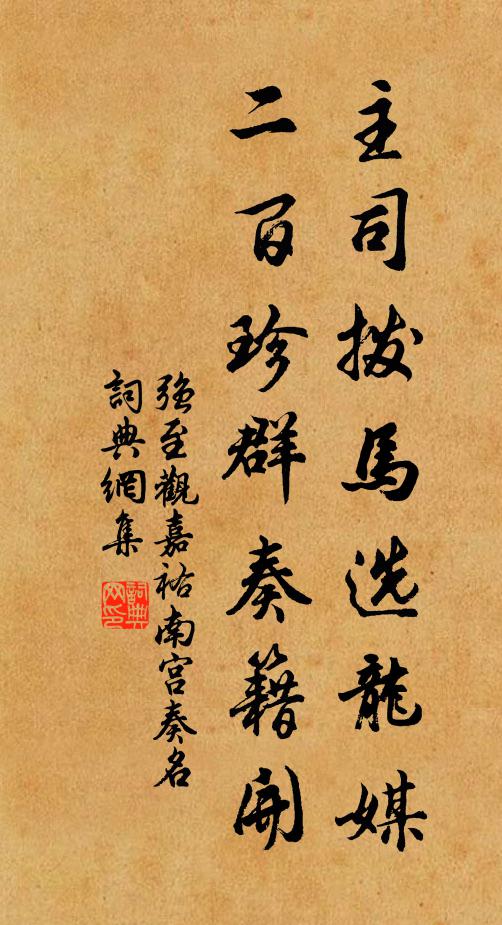 主司拨馬选龍媒
二百珍群奏籍開
強至觀嘉祐南宫奏名
詞典網集
詞典网印